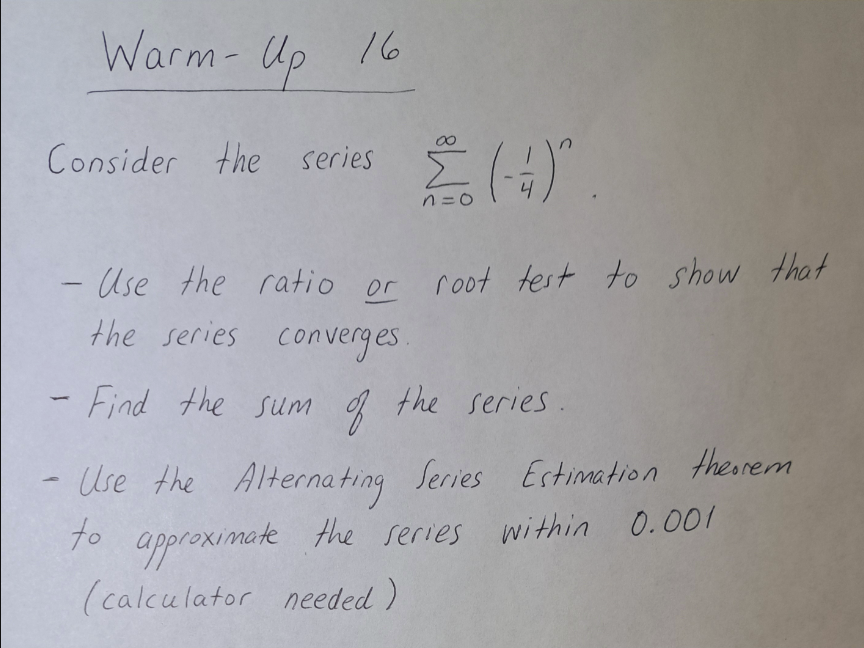 Warm-Up 16
Consider the series ∑_{n=0}^{∞} (-1/4)^n .
- Use the ratio or root test to show that
the series converges.
- Find the sum of the series.
- Use the Alternating Series Estimation theorem
to approximate the series within 0.001
(calculator needed)